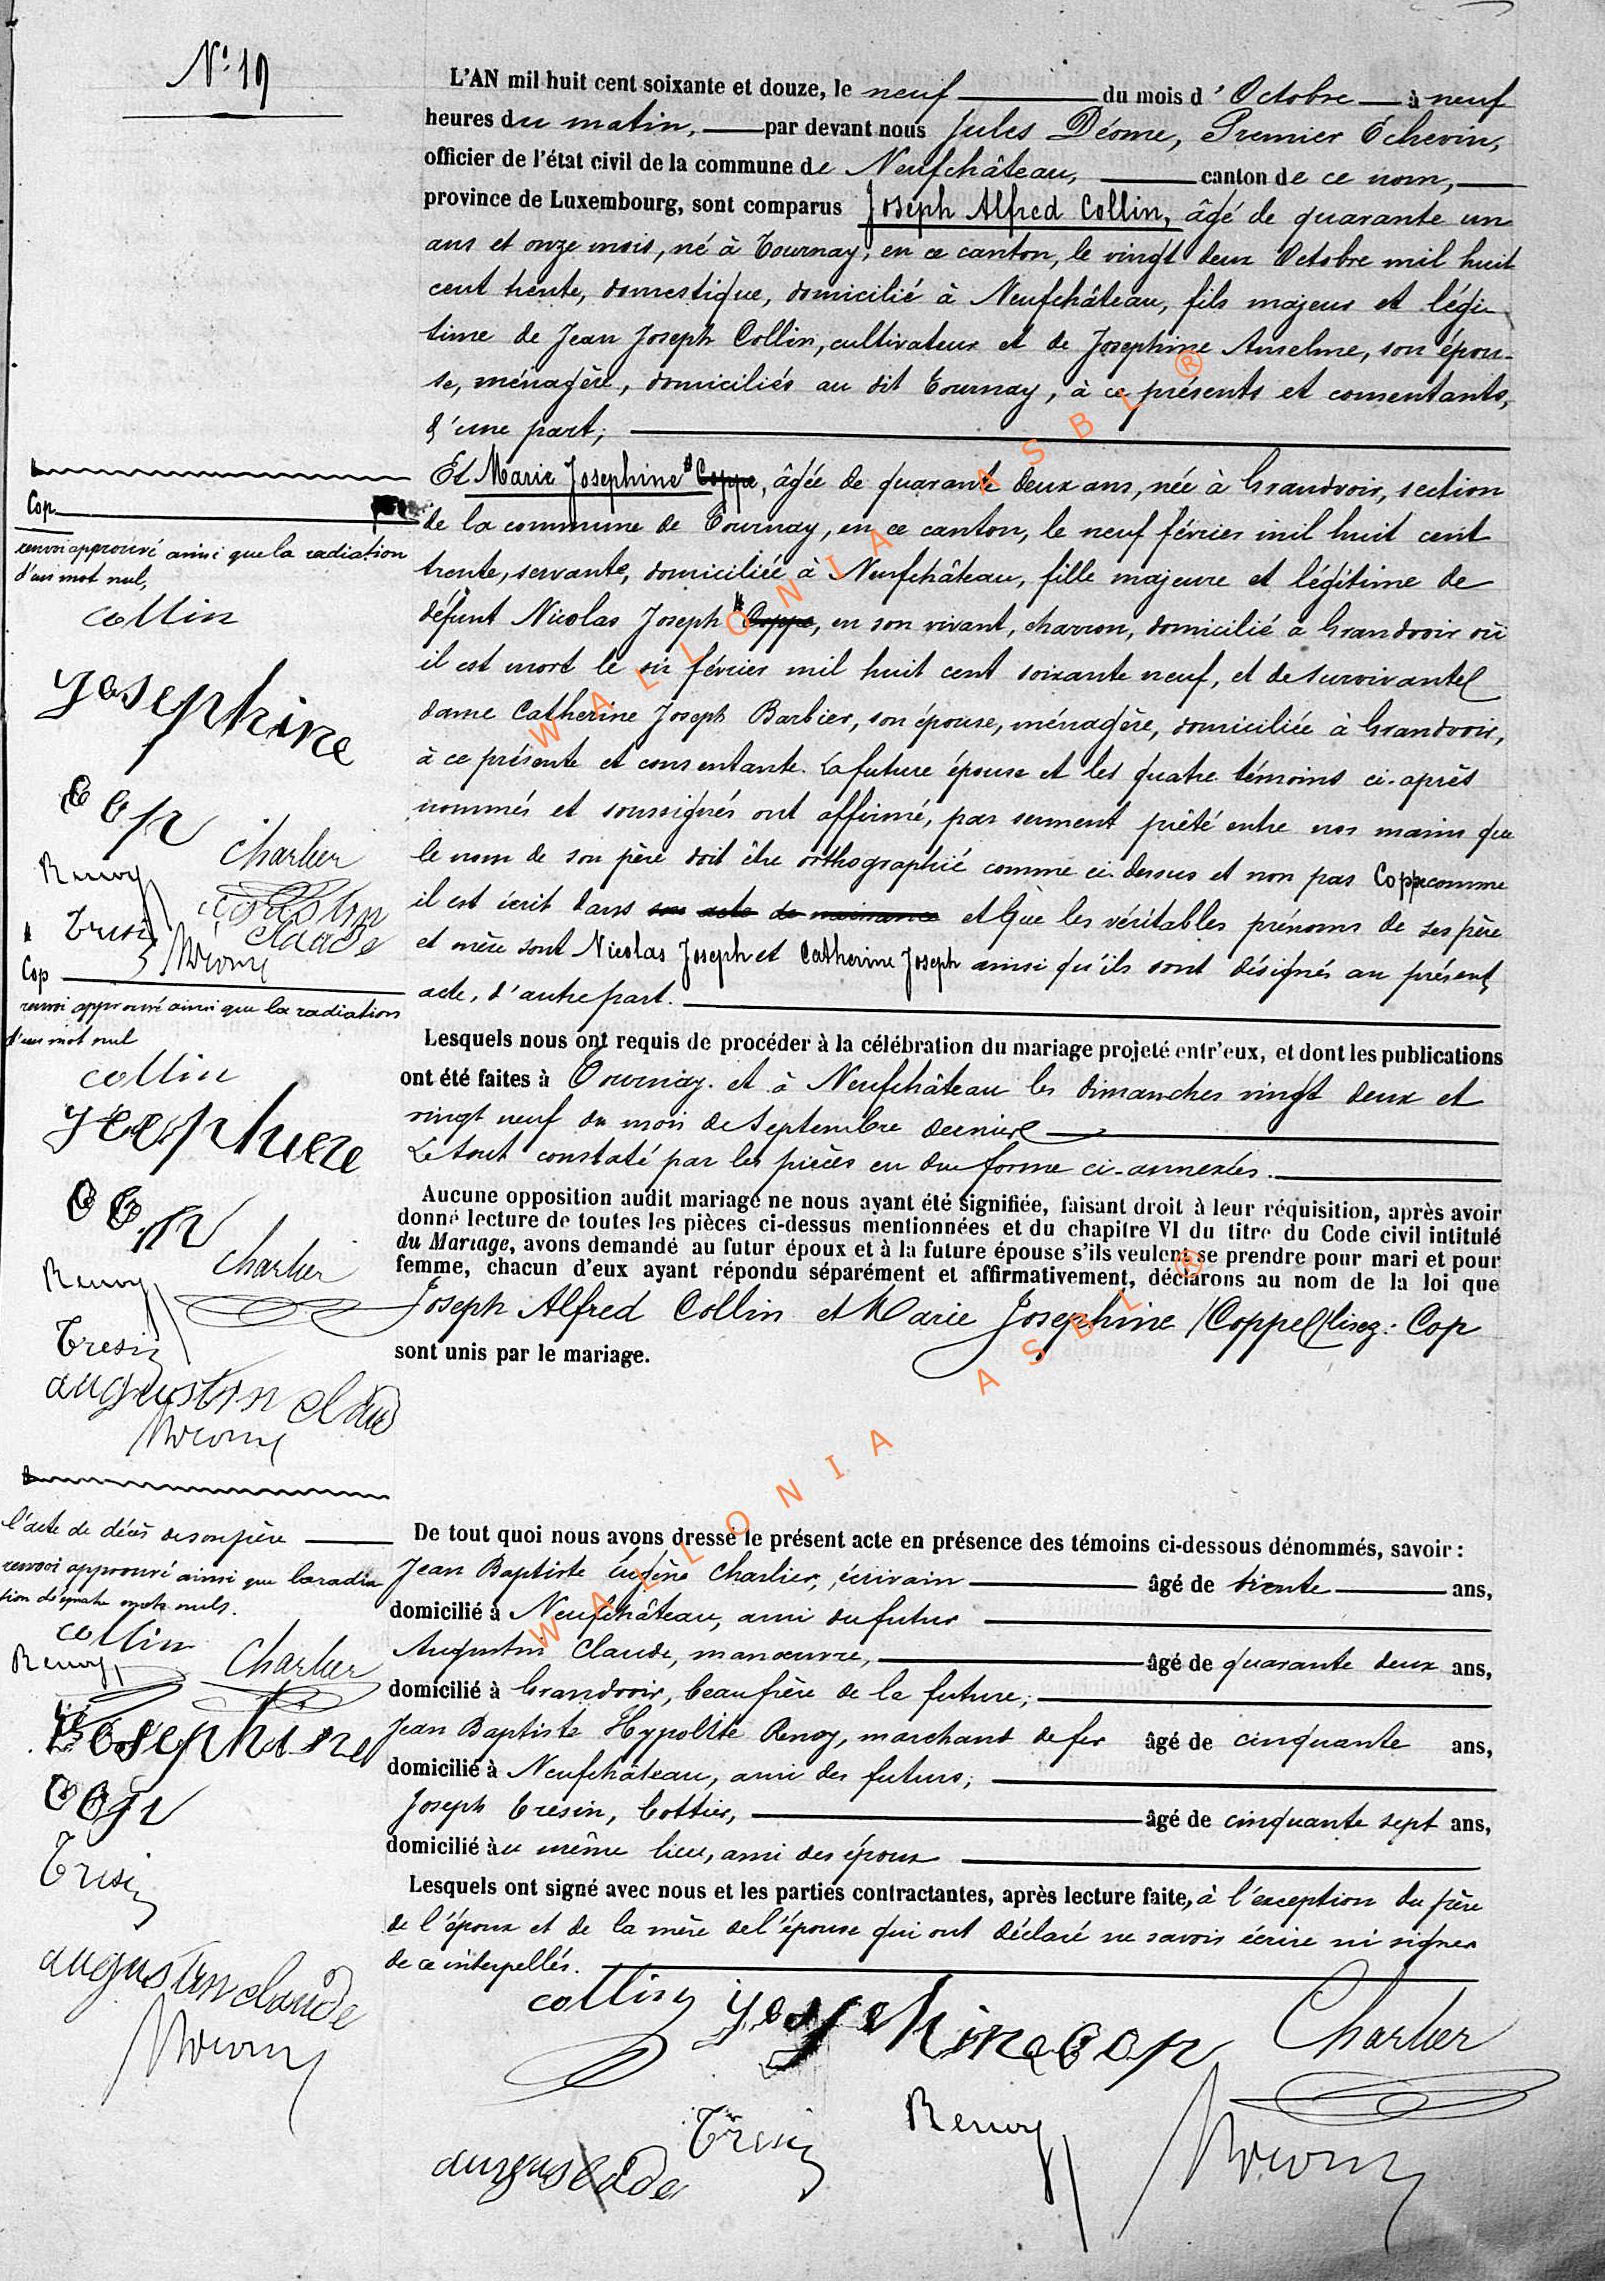 N.° 19
L'AN mil huit cent soixante et douze, le neuf du mois d'Octobre à neuf
heures du matin, par devant nous Jules Déome, Premier Échevin,
officier de l'état civil de la commune de Neufchâteau, canton de ce nom,
province de Luxembourg, sont comparus Joseph Alfred Collin, âgé de quarante un
ans et onze mois, né à Tournay, en ce canton, le vingt deux Octobre mil huit
cent trente, domestique, domicilié à Neufchâteau, fils majeur et légi-
time de Jean Joseph Collin, cultivateur et de Josephine Anselme, son épou-
se, ménagère, domiciliés au dit Tournay, à ce présents et consentants,
d'une part;
Et Marie Josephine Coppe, âgée de quarante deux ans, née à Grandvoir, section
de la commune de Tournay, en ce canton, le neuf février mil huit cent
trente, servante, domiciliée à Neufchâteau, fille majeure et légitime de
défunt Nicolas Joseph Coppe, en son vivant, charron, domicilié à Grandvoir où
il est mort le six février mil huit cent soixante neuf, et de survivante
dame Catherine Joseph Barbier, son épouse, ménagère, domiciliée à Grandvoir,
à ce présente et consentante. La future épouse et les quatre témoins ci-après
nommés et soussignés ont affirmé, par serment prêté entre nos mains que
le nom de son père doit être orthographié comme ci-dessus et non pas Coppe comme
il est écrit dans son acte de naissance et que les véritables prénoms de ses père
et mère sont Nicolas Joseph et Catherine Joseph ainsi qu'ils sont désignés au présent
acte, d'autre part.
Lesquels nous ont requis de procéder à la célébration du mariage projeté entr'eux, et dont les publications
ont été faites à Tournay et à Neufchâteau les dimanches vingt deux et
vingt neuf du mois de Septembre dernier
Le tout constaté par les pièces en due forme ci-annexées.
Aucune opposition audit mariage ne nous ayant été signifiée, faisant droit à leur réquisition, après avoir
donné lecture de toutes les pièces ci-dessus mentionnées et du chapitre VI du titre du Code civil intitulé
du Mariage, avons demandé au futur époux et à la future épouse s'ils veulent se prendre pour mari et pour
femme, chacun d'eux ayant répondu séparément et affirmativement, déclarons au nom de la loi que
Joseph Alfred Collin et Marie Josephine (Coppe) lisez: Cop
sont unis par le mariage.
De tout quoi nous avons dressé le présent acte en présence des témoins ci-dessous dénommés, savoir :
Jean Baptiste Eugène Charlier, écrivain âgé de trente ans,
domicilié à Neufchâteau, ami du futur
Augustin Claude, manœuvre, âgé de quarante deux ans,
domicilié à Grandvoir, beau frère de la future;
Jean Baptiste Hypolite Renoy, marchand de fer âgé de cinquante ans,
domicilié à Neufchâteau, ami des futurs;
Joseph Tresin, bottier, âgé de cinquante sept ans,
domicilié au même lieu, ami des époux
Lesquels ont signé avec nous et les parties contractantes, après lecture faite, à l'exception du père
de l'époux et de la mère de l'épouse qui ont déclaré ne savoir écrire ni signer
de ce interpellés.
collin Josephine cop Charlier
Tresin Renoy
augus
Cop
renvoi approuvé ainsi que la radiation
d'un mot nul,
collin
Josephine
cop
Charlier
Renoy
augustin
claude
Tresin
Cop
renvoi approuvé ainsi que la radiation
d'un mot nul
collin
Josephine
cop
Charlier
Renoy
Tresin
augustin claud
l'acte de décès de son père
renvoi approuvé ainsi que la radia
tion de quatre mots nuls.
collin
Renoy Charlier
Josephine
cop
Tresin
augustin claude
WALLONIA ASBL ®
WALLONIA ASBL ®